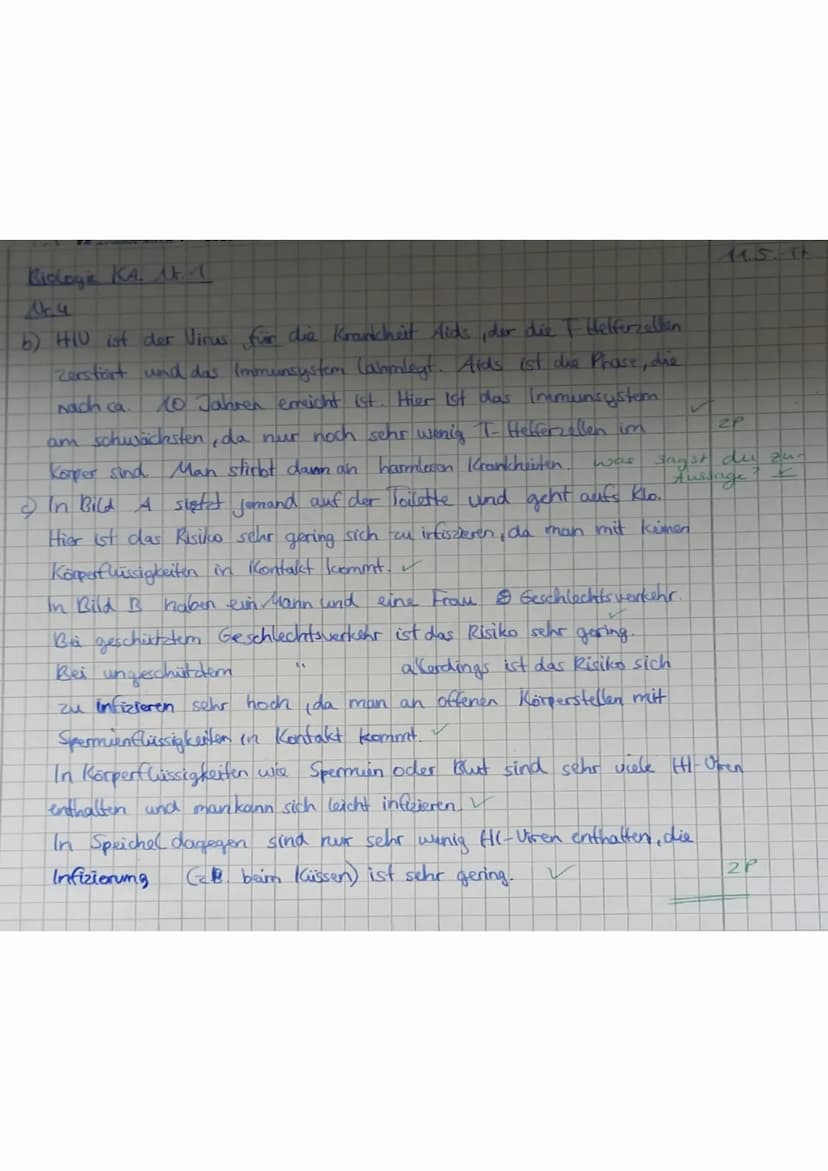 Biologie KA. Nr. 1
Nr. 4
b) HIV ist der Virus für die Krankheit Aids, der die T-Helferzellen
zerstört und das Immunsystem lahmlegt. Aids ist die Phase, die
nach ca. 10 Jahren erreicht ist. Hier ist das Immunsystem
am schwächsten, da nur noch sehr wenig T-Helferzellen im
2P
Körper sind. Man stirbt dann an harmlosen Krankheiten. was sagst du zur
Aussage?
c) In Bild A sietzt jemand auf der Toilette und geht aufs Klo.
Hier ist das Risiko sehr gering sich zu infiszieren, da man mit keinen
Körperflüssigkeiten in Kontakt kommt. ✓
In Bild B haben ein Mann und eine Frau Geschlechtsverkehr.
Bei geschütztem Geschlechtsverkehr ist das Risiko sehr gering. ✓
Bei ungeschütztem " allerdings ist das Risiko sich
zu infizieren sehr hoch, da man an offenen Körperstellen mit
Spermienflüssigkeiten in Kontakt kommt. ✓
In Körperflüssigkeiten wie Spermien oder Blut sind sehr viele HI-Viren
enthalten und man kann sich leicht infizieren. ✓
In Speichel dagegen sind nur sehr wenig HI-Viren enthalten, die
Infizierung (z.B. beim Küssen) ist sehr gering. ✓
2P